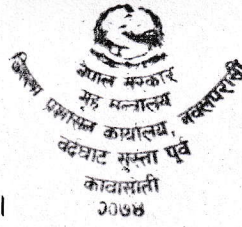 नेपाल सरकार
गृह मन्त्रालय
जिल्ला प्रशासन कार्यालय, नवलपरासी
वर्दघाट सुस्ता पूर्व
कावासोती
२०७४